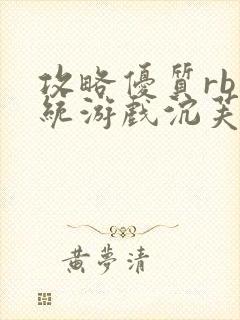 攻略優質rb
統游戲沉芙
黃夢清